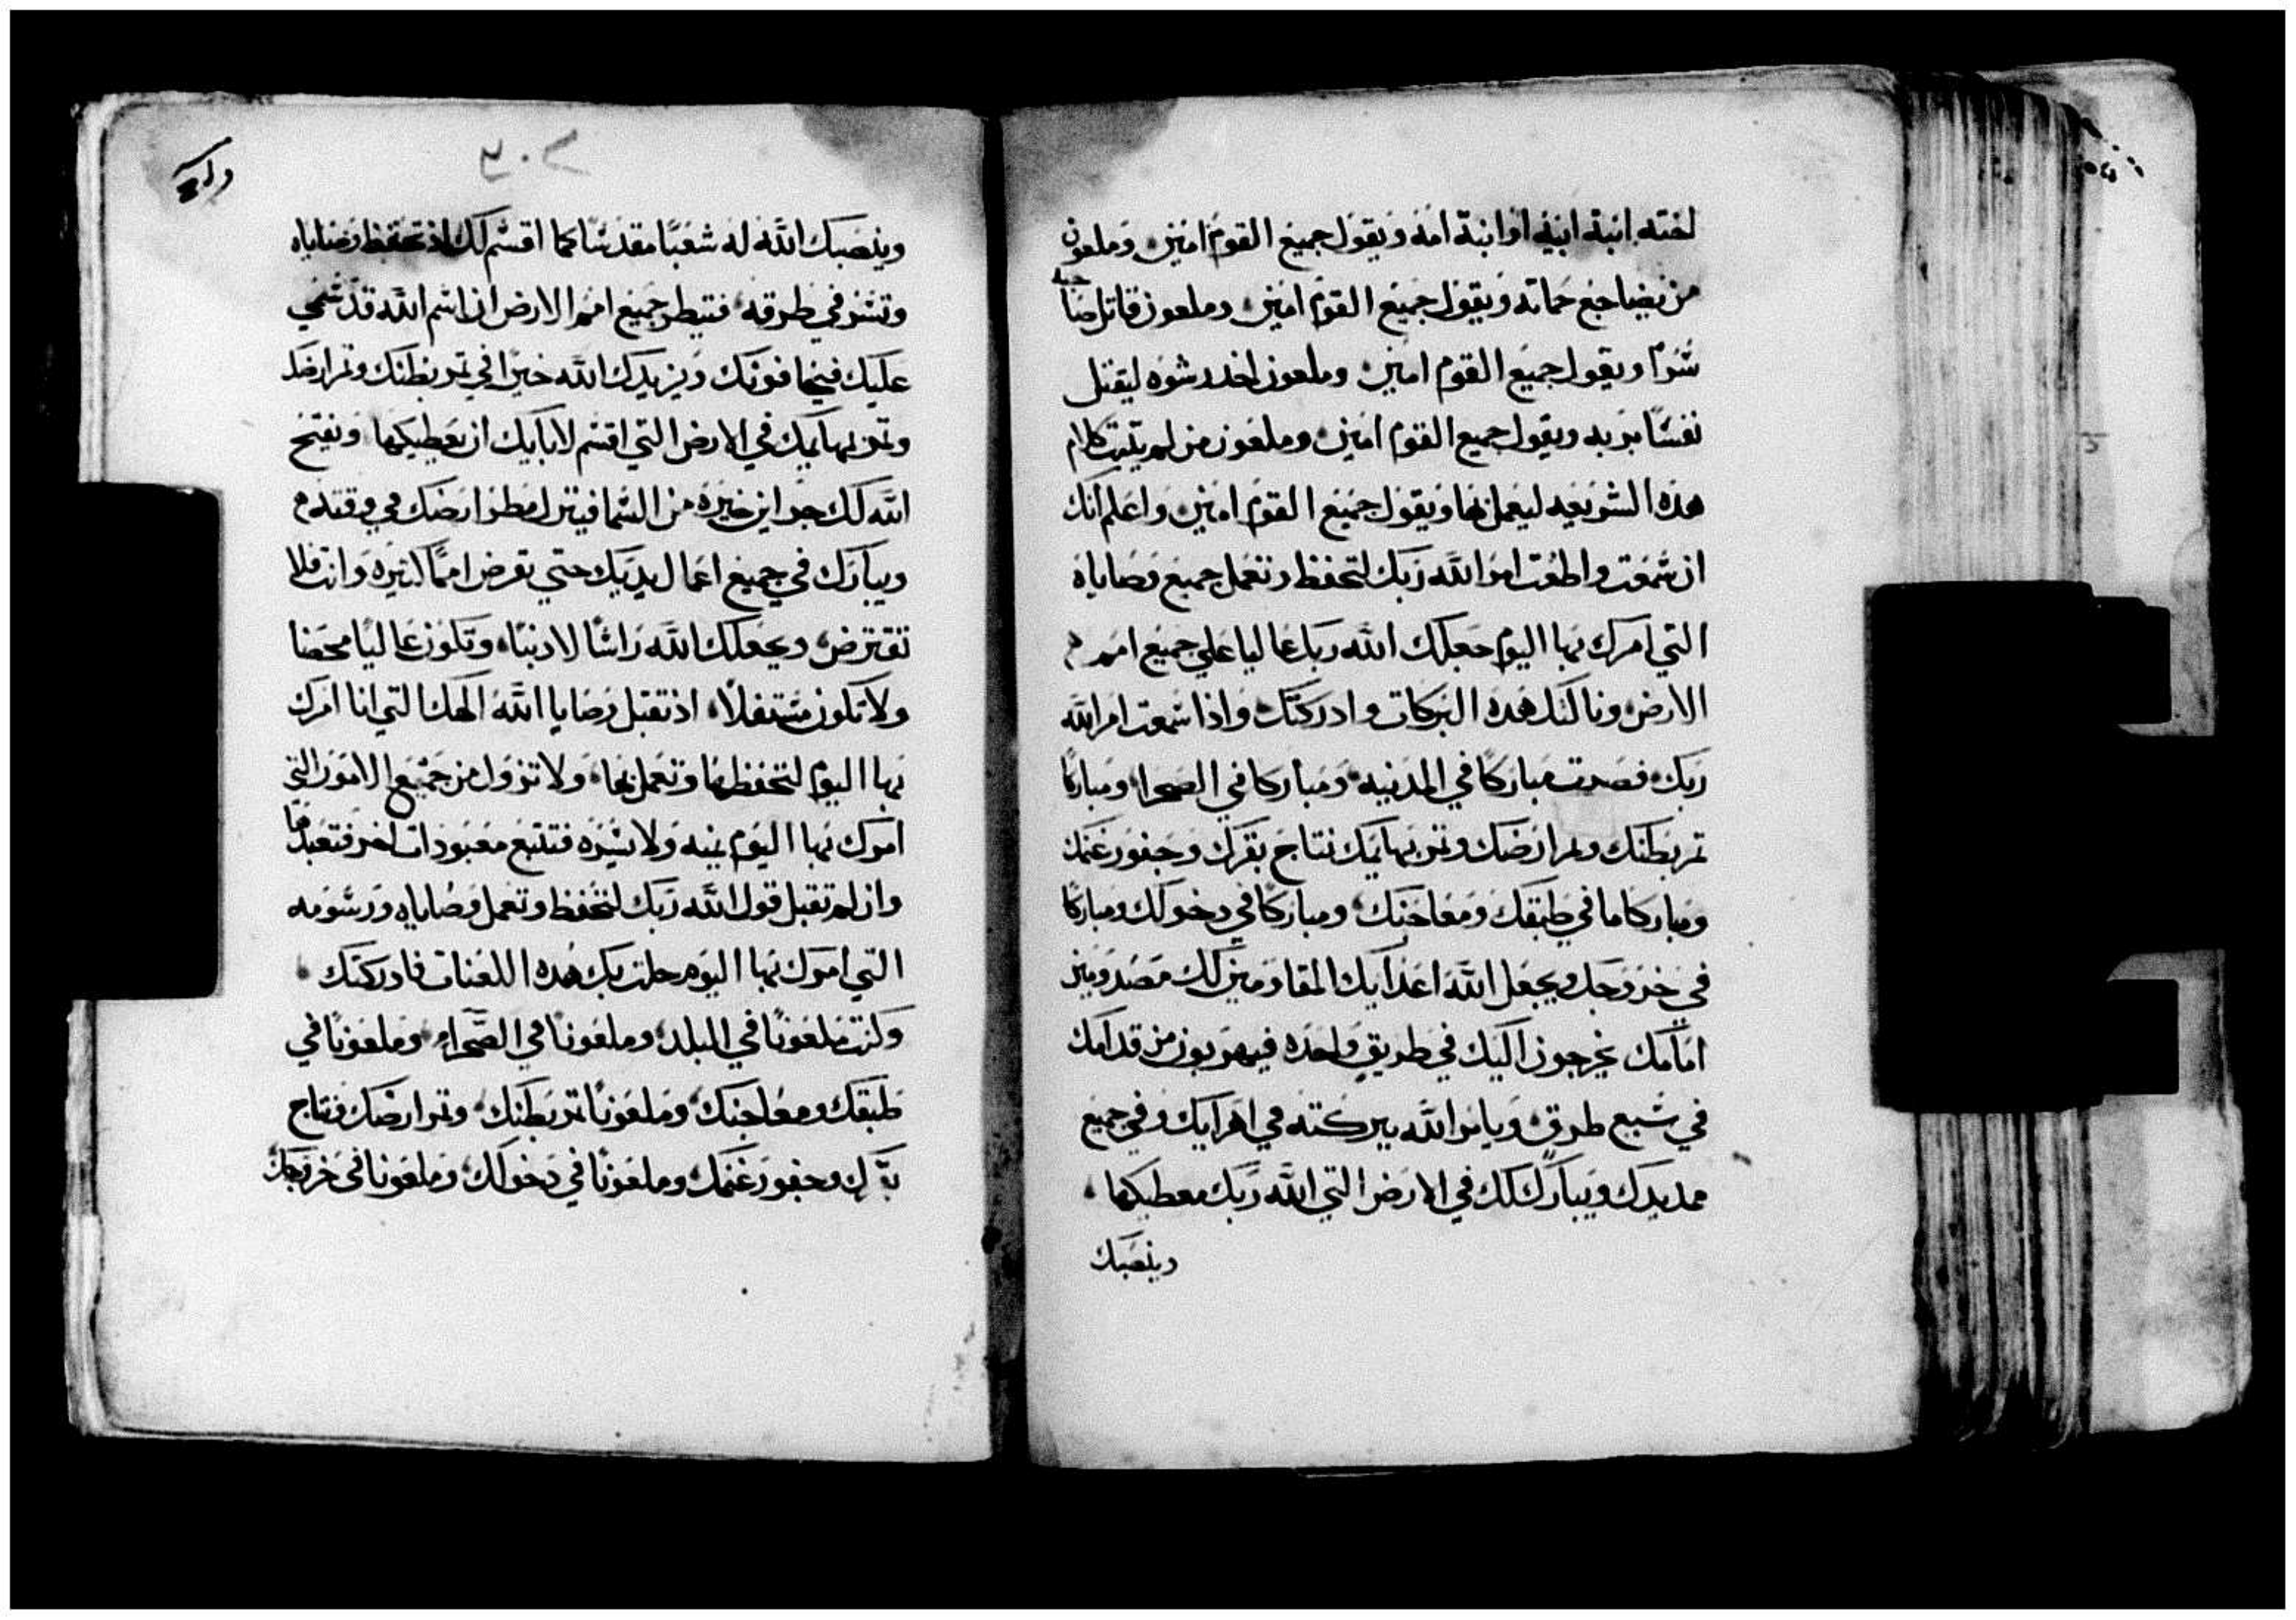 اخته ابنة ابيه او ابنة امه ويقول جميع القوم امين وملعون
من يضاجع حماته ويقول جميع القوم امين وملعون قاتل صاحبه
سرا ويقول جميع القوم امين وملعون اخد رشوه ليقتل
نفسا بريه ويقول جميع القوم امين وملعون من لم يثبت كلام
هذه الشريعه ليعمل بها ويقول جميع القوم امين واعلم انك
ان سمعت واطعت امر الله ربك لتحفظ وتعمل جميع وصاياه
التي امرك بها اليوم جعلك الله ربك عاليا علي جميع امم
الارض ونالتك هده البركات وادركتك واذا سمعت امر الله
ربك فصرت مباركا في المدينه ومباركا في الصحرا ومباركا
ثمر بطنك وثمر ارضك وثمر بهايمك نتاج بقرك وجفور غنمك
ومباركا ما في طبقك ومعاجنك ومباركا في دخولك ومباركا
في خروجك ويجعل الله اعدايك المقاومين لك مصدومين
امامك يخرجون اليك في طريق واحده فيهربون من قدامك
في سبع طرق ويامر الله ببركته في اهرايك وفي جميع
مد يدك ويبارك لك في الارض التي الله ربك معطيكها
وينصبك
٢٠٤
وينصبك الله له شعبا مقدسا كما اقسم لك اذ تحفظ وصاياه
وتسر في طرقه فتيطر جميع امم الارض ان اسم الله قد سمي
عليك فيخافونك ويزيدك الله خيرا في ثمر بطنك وثمر ارضك
وثمر بهايمك في الارض التي اقسم لابايك ان يعطيكها ويفتح
الله لك خزاين خيره من السما فينزل مطر ارضك في وقته
ويبارك في جميع اعمال يديك حتي تقرض امما كثيره وانت فلا
تقترض ويجعلك الله راسا لا دنبا وتكون عاليا محضا
ولا تكون مستفلا اذ تقبل وصايا الله الهك التي انا امرك
بها اليوم لتحفظها وتعمل بها ولا تزول من جميع الامور التي
امرك بها اليوم يمنه ولا يسره فتتبع معبودات اخر فتعبدها
وان لم تقبل قول الله ربك لتحفظ وتعمل وصاياه ورسومه
التي امرك بها اليوم حلت بك هده اللعنات فادركتك
وكنت ملعونا في البلد وملعونا في الصحراء وملعونا في
طبقك ومعاجنك وملعونا ثمر بطنك وثمر ارضك ونتاج
بقرك وجفور غنمك وملعونا في دخولك وملعونا في خروجك